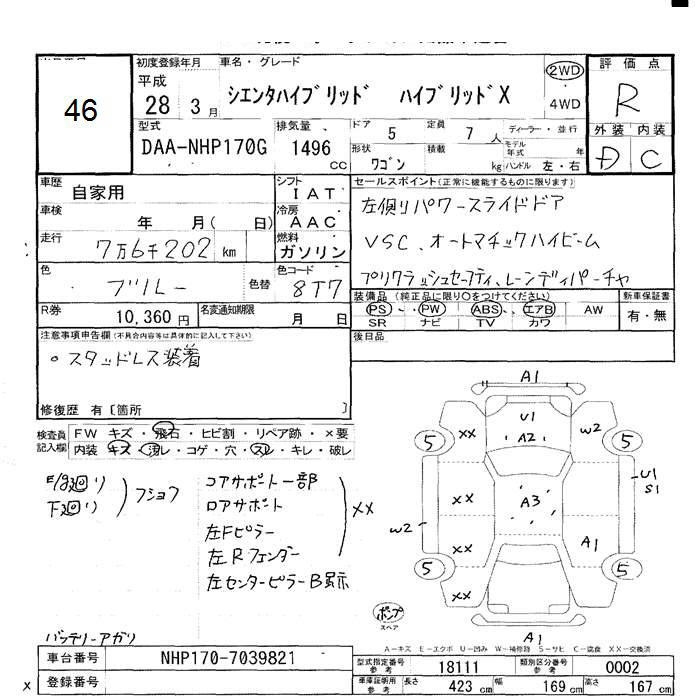 46
初度登録年月
平成
28 3月
車名・グレード
シエンタハイブリッド ハイブリッドX
2WD
4WD
評価点
R
外装 内装
D C
型式
DAA-NHP170G
排気量
1496 cc
ドア 5
定員 7人
ディーラー・並行
モデル年式 年
形状 ワゴン
積載 kg
ハンドル 左・右
車歴 自家用
シフト IAT
車検 年 月(日)
冷房 AAC
走行 7万6千202 km
燃料 ガソリン
色 ブルー 色替
色コード 8T7
R券 10,360円
名変通知期限 月 日
セールスポイント(正常に機能するものに限ります)
左側リパワースライドドア
VSC、オートマチックハイビーム
プリクラッシュセーフティ、レーンディパーチャ
装備品(純正品に限り○をつけてください)
PS・PW・ABS・エアB AW
SR ナビ TV カワ
新車保証書
有・無
後日品
注意事項申告欄(不具合内容等は具体的に記入して下さい)
。スタッドレス装着
修復歴 有〔箇所 〕
検査員記入欄
FW キズ・飛石・ヒビ割・リペア跡・×要
内装 キズ・汚レ・コゲ・穴・スレ・キレ・破レ
下廻り
フショク
コアサポート一部
ロアサポート
左Fピラー
左Rフェンダー
XX
左センターピラーB顕示
バッテリーアガリ
A1
U1
A2
XX
W2
5
5
XX
A3
U1
S1
W2
XX
A1
5
5
XX
ポンプ
スペア
A1
A-キズ E-エクボ U-凹み W-補修跡 S-サビ C-腐食 XX-交換済
車台番号 NHP170-7039821
登録番号
型式指定番号 参考 18111
類別区分番号 参考 0002
車庫証明用 参考 長さ 423 cm 幅 169 cm 高さ 167 cm
X